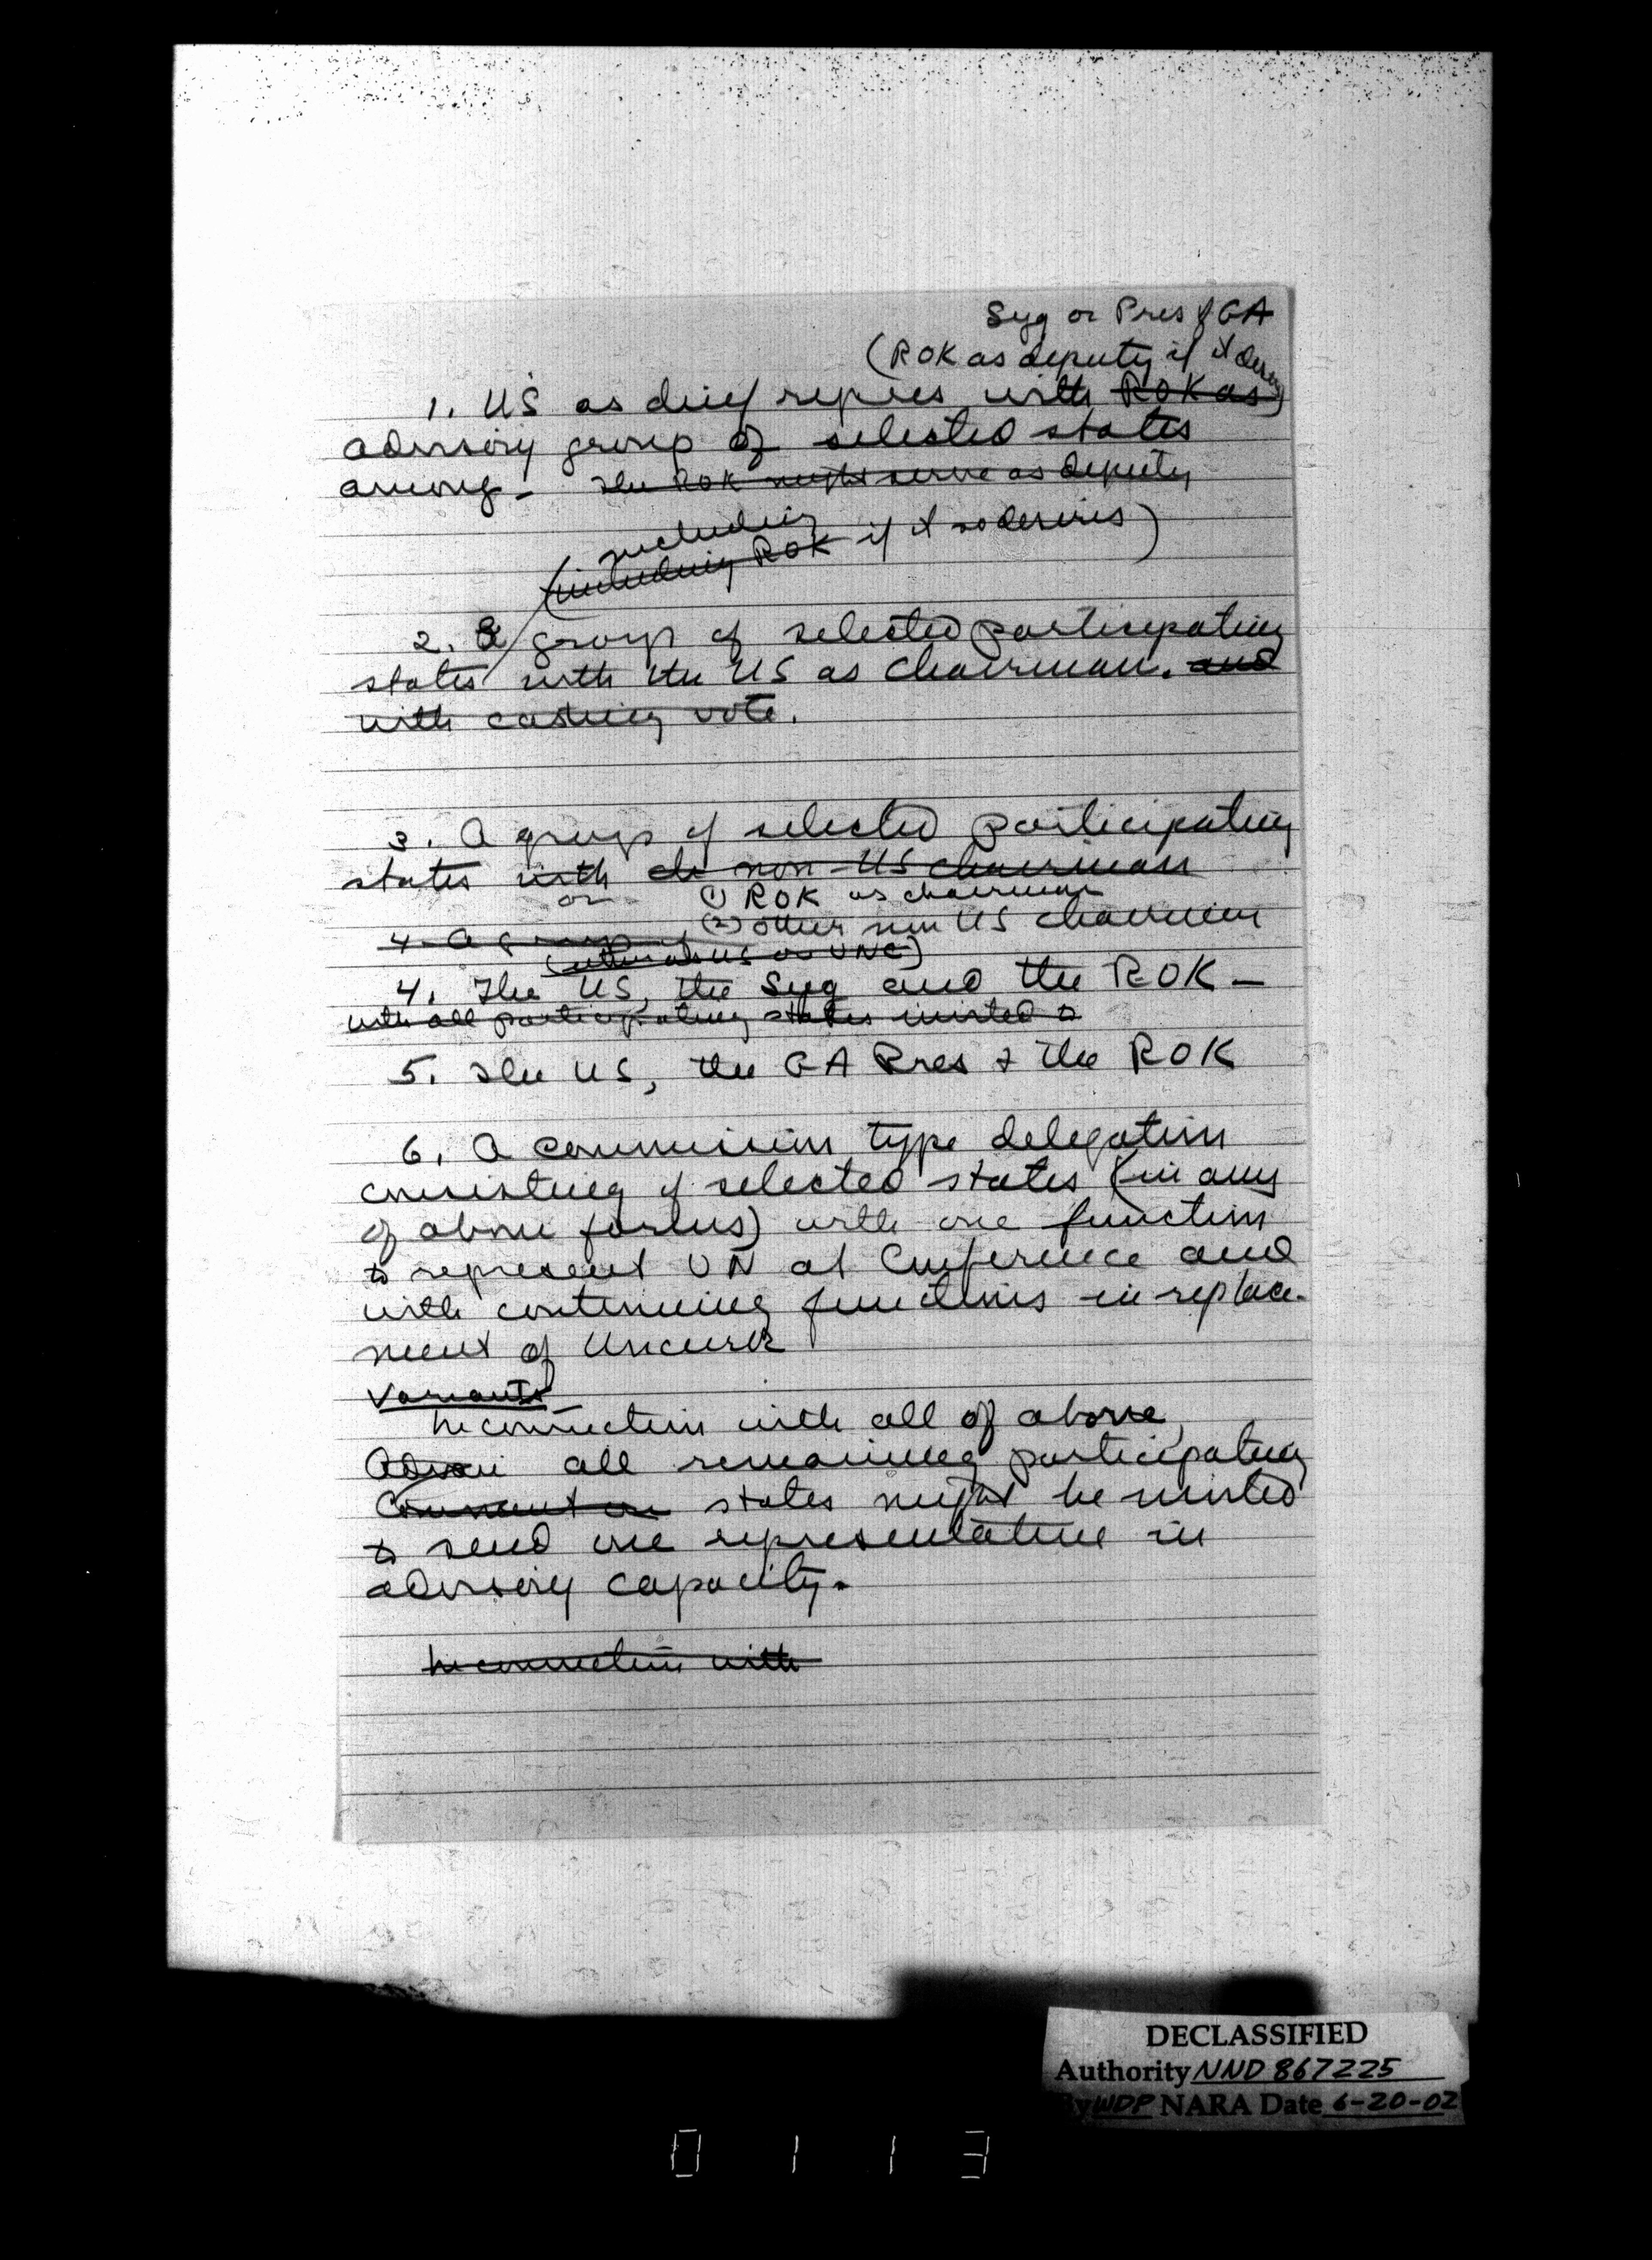 Syg or Pres of GA
(ROK as deputy if it desires)
1. US as chief repres with ROK as
advisory group of selected states
among - The ROK might serve as deputy
including
(including ROK if it so desires)
2. A group of selected participating
states with the US as Chairman. and
with casting vote.
3. A group of selected participating
states with ch non-US chairman
or (1) ROK as chairman
(2) other non US chairman
4. A group
(either as US or UNC)
4. The US, the Syg and the ROK -
with all participating states invited to
5. The US, the GA Pres & the ROK
6. A commission type delegation
consisting of selected states (in any
of above forms) with one function
to represent UN at Conference and
with continuing functions in replace-
ment of Uncurk
Variants
In connection with all of above,
all remaining participating
states might be invited
to send one representative in
advisory capacity.
In connection with
DECLASSIFIED
Authority NND 867225
By WDP NARA Date 6-20-02
0 1 1 3